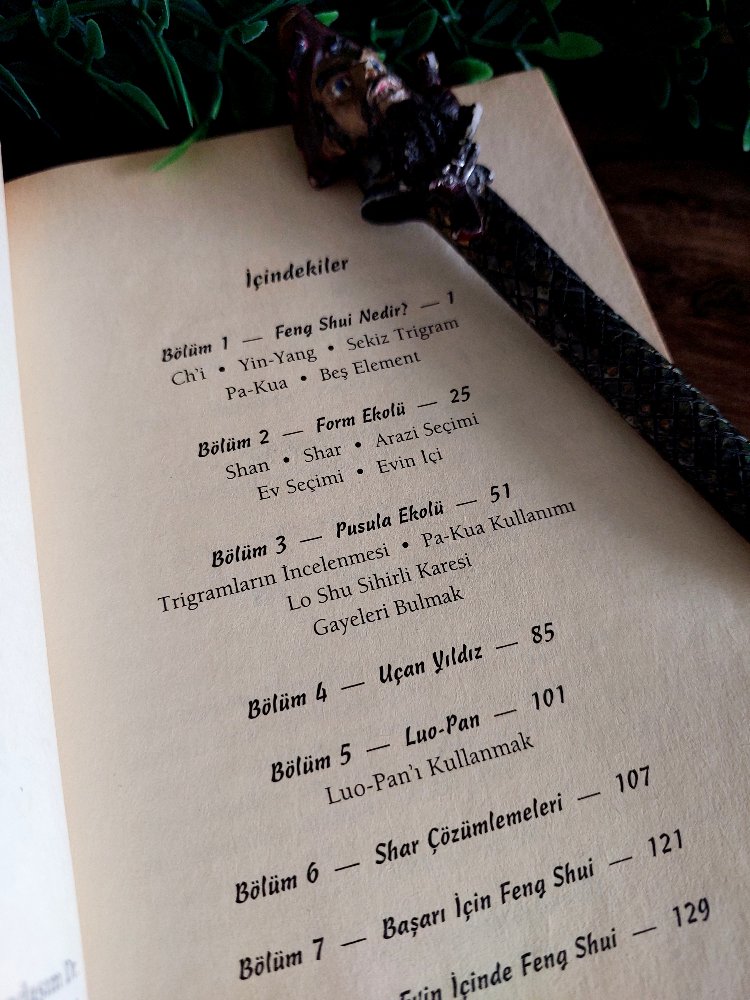 İçindekiler
Bölüm 1 — Feng Shui Nedir? — 1
Ch'i • Yin-Yang • Sekiz Trigram
Pa-Kua • Beş Element
Bölüm 2 — Form Ekolü — 25
Shan • Shar • Arazi Seçimi
Ev Seçimi • Evin Içi
Bölüm 3 — Pusula Ekolü — 51
Trigramların Incelenmesi • Pa-Kua Kullanımı
Lo Shu Sihirli Karesi
Gayeleri Bulmak
Bölüm 4 — Uçan Yıldız — 85
Bölüm 5 — Luo-Pan — 101
Luo-Pan'ı Kullanmak
Bölüm 6 — Shar Çözümlemeleri — 107
Bölüm 7 — Başarı İçin Feng Shui — 121
İçinde Feng Shui — 129